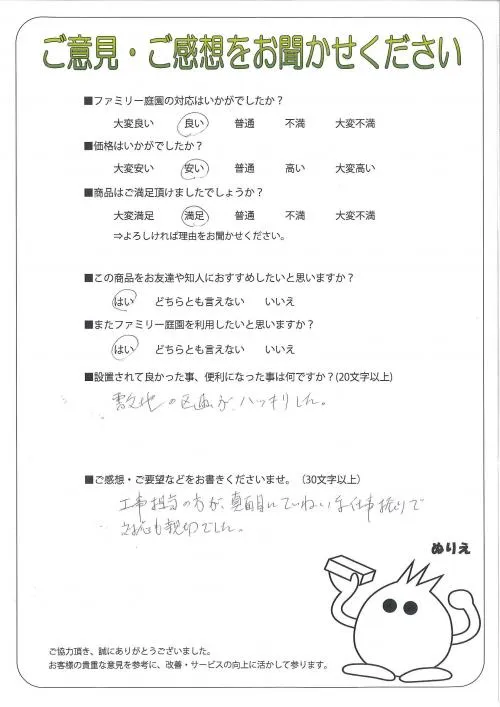 ご意見・ご感想をお聞かせください
■ファミリー庭園の対応はいかがでしたか？
大変良い 良い 普通 不満 大変不満
■価格はいかがでしたか？
大変安い 安い 普通 高い 大変高い
■商品はご満足頂けましたでしょうか？
大変満足 満足 普通 不満 大変不満
⇒よろしければ理由をお聞かせください。
■この商品をお友達や知人におすすめしたいと思いますか？
はい どちらとも言えない いいえ
■またファミリー庭園を利用したいと思いますか？
はい どちらとも言えない いいえ
■設置されて良かった事、便利になった事は何ですか？(20文字以上)
敷地の区画が、ハッキリした。
■ご感想・ご要望などをお書きくださいませ。（30文字以上）
工事担当の方が、真面目にていねいな仕事振りで
対応も親切でした。
ぬりえ
ご協力頂き、誠にありがとうございました。
お客様の貴重な意見を参考に、改善・サービスの向上に活かして参ります。